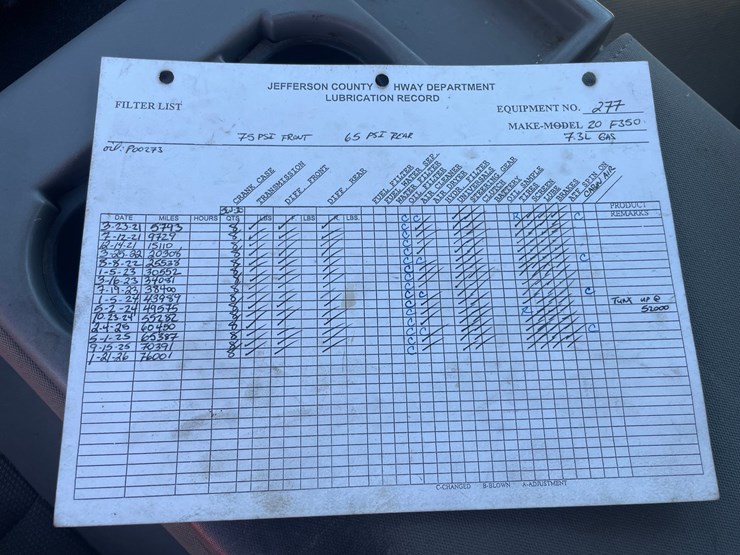 JEFFERSON COUNTY HWAY DEPARTMENT
LUBRICATION RECORD
FILTER LIST
EQUIPMENT NO. 277
MAKE-MODEL 20 F350
7.3L GAS
75 PSI FRONT 65 PSI REAR
oil: P00273
CRANK CASE
TRANSMISSION
DIFF. FRONT
DIFF. REAR
FUEL FILTER
FUEL WATER SEP.
WATER FILTER
OIL FILTER
AIR CLEANER
AIR DRYER
UNIVERSALS
STEERING GEAR
CLUTCH
BATTERY
OIL SAMPLE
TIRES
SCREEN
LUBE
BRAKES
ATF SPIN ON
CABIN AIR
PRODUCT
DATE MILES HOURS QTS LBS. LBS. LBS. REMARKS
3-23-21 5793 8
7-12-21 9729 8
12-14-21 15110 8
3-25-22 20308 8
8-8-22 25538 8
1-5-23 30552 8
3-16-23 34081 8
7-19-23 38940 8
1-5-24 43989 8
5-2-24 49575 8 TUNE UP @
10-23-24 55282 8 52000
2-4-25 60400 8
5-1-25 65387 8
9-15-25 70391 8
1-21-26 76001 8
C-CHANGED B-BLOWN A-ADJUSTMENT